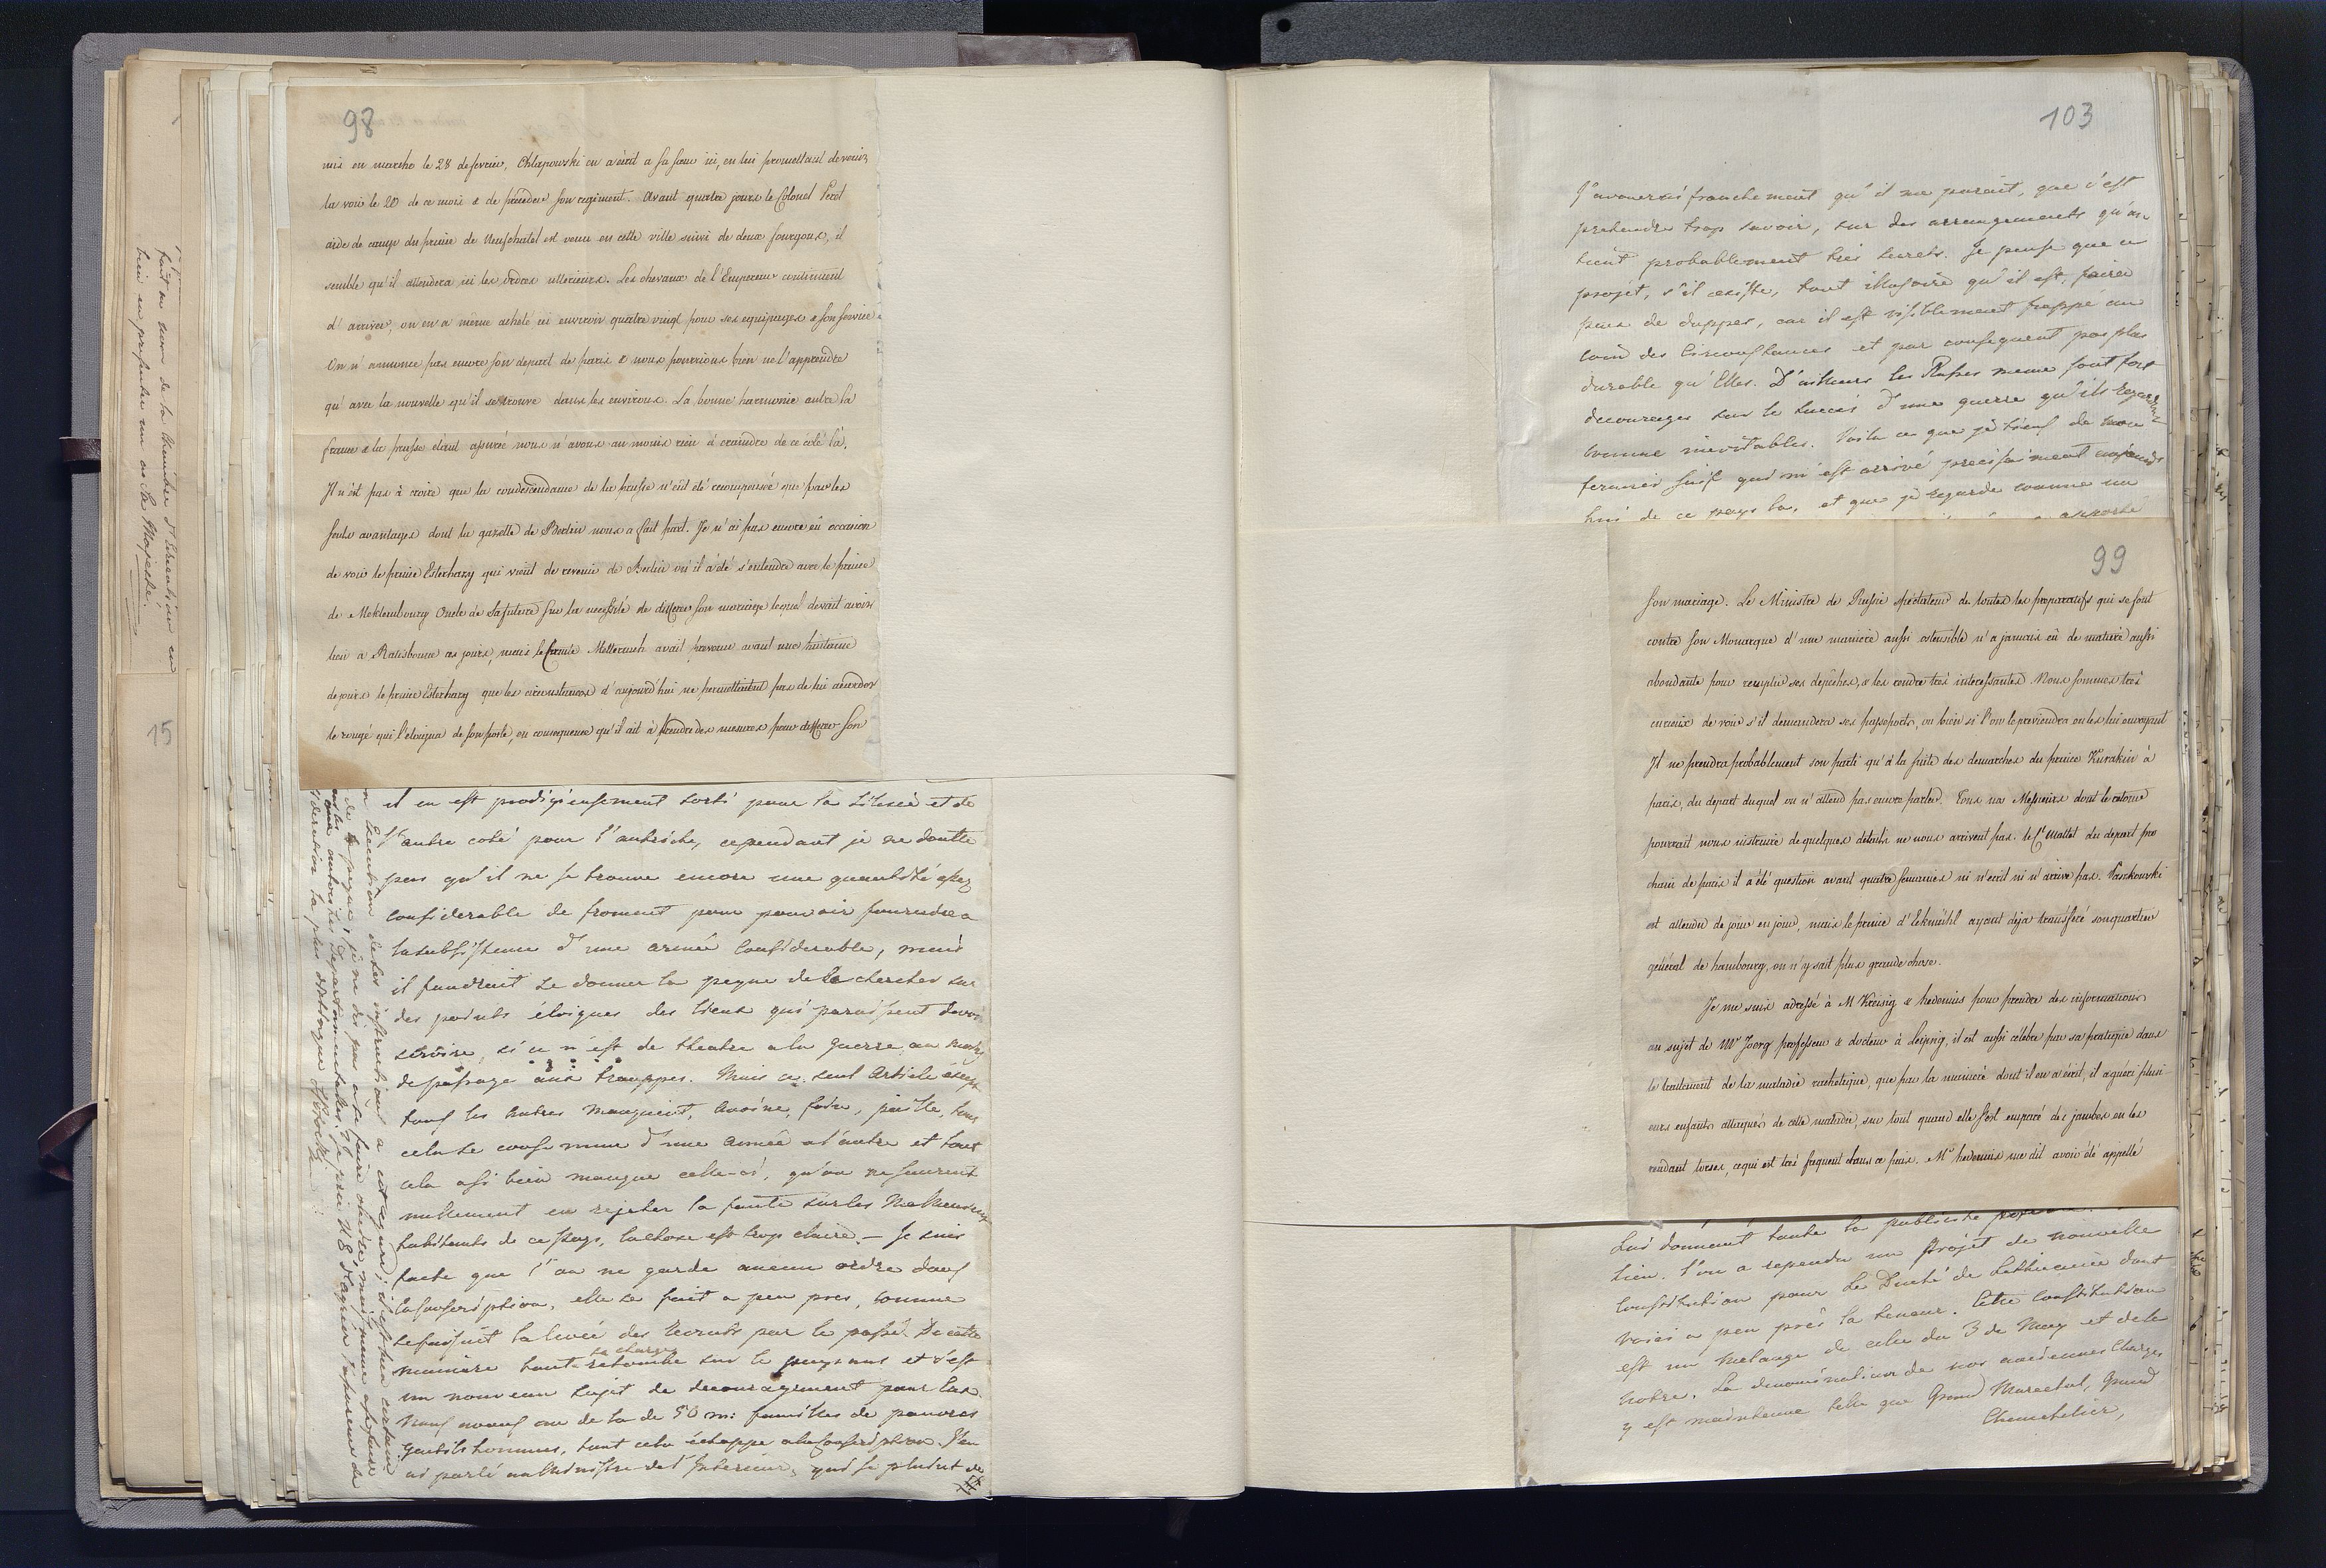 98
mis en marche le 28 de fevrier, Chlapowski en a écrit a sa sœur ici, en lui promettant de venir
la voir le 20 de ce mois & de préceder son regiment. Avant quatre jours le Colonel
aide de camp du prince de Neufchatel est venu en cette ville suivi de deux fourgons, il
semble qu'il attendera ici les ordres ulterieurs. Les chevaux de l'Empereur continuent
d'arriver, on en a même acheté ici environ quatre vingt pour ses equipages & son service
On n'annonce pas encore son depart de paris & nous pourrions bien ne l'apprendre
qu'avec la nouvelle qu'il se trouve dans les environs. La bonne harmonie entre la
france & la prusse étant assurée nous n'avons au moins rien à craindre de ce coté là.
Il n'est pas à croire que la condescendance de la prusse n'eût été recompensée que par les
seuls avantages dont la gazette de Berlin nous a fait part. Je n'ai pas encore eû occasion
de voir le prince Esterhazy qui vient de revenir de Berlin où il a été s'entendre avec le prince
de Meklembourg Oncle de sa future sur la necessité de differer son mariage lequel devait avoir
lieu a Ratisbonne ces jours, mais le Comte Metternich avait prevenu avant une huitaine
de jours le prince Esterhazy que les circonstances d'aujourd'hui ne permettaient pas de lui accorder
le congé qui l'eloigna de son poste, en consequence qu'il ait à prendre des mesures pour differer son
il en est prodigieusement sorti pour la Silesie et de
l'autre coté pour l'autriche, cependant je ne doutte
pas qu'il ne se trouve encore une quantité assez
considerable de froment pour pouvoir
la subsistence d'une armée considerable, mais
il faudrait se donner la peyne de le chercher sur
des points éloignes des lieux qui paraissent devoir
servire, si ce n'est de theatre a la guerre, au moins
de passage aux trouppes. Mais ce seul article
tous les autres manquent, avoine, foin, paille, tout
cela se consomme d'une année a l'autre et tout
cela assi bien manque celle-ci, qu'on ne saurent
nullement en rejeter la faute sur les Malheureux
habitants de ce pays, la chose est trop claire. – Je suis
faché que l'on ne garde aucun ordre dans
la conscription, elle se fait a peu pres, comme
se faisoit la levée des recruts par le passé. De cette
maniere toute sa charge retombe sur le paysans et c'est
un nouveau sujet de decouragement pour
Nous avons au de la de 50 m: familles de pauvres
gentils hommes, tout cela échappe a la conscription. J'en
ai parlé au Ministre de l'Interieur, qui se plaint de
fait au nom de la Chambre d'Education en
lieu en presenter un a Sa Majesté.
15
103
J'avouerai franchement qu'il me parait, que c'est
pretendre trop savoir, sur des arrangements qu'on
tient probablement tres secrets. Je pense que ce
projet, s'il existe, tout illusoire qu'il est, faira
peu de duppes, car il est visiblement frappé au
coin des Circonstances et par consequent pas plus
durable qu'Elles. D'ailleurs les Russes meme sont fort
decourages sur le succes d'une guerre qu'ils regardent
comme inevitables. Voila ce que je tiens de mon
fermier Juif qui m'est arrivé precisement
de ce pays la, et que je regarde comme un
99
son mariage. Le Ministre de Russie spectateur de toutes les preparatifs qui se font
contre son Monarque d'une maniere aussi ostensible n'a jamais eû de matiere aussi
abondante pour remplir ses depêches, & les rendre très interessantes. Nous sommes très
curieux de voir s'il demandera ses passeports, ou bien si l'on le previendra en les lui envoyant
Il ne prendra probablement son parti qu'à la suite des demarches du prince Kurakin à
paris, du depart duquel on n'entend pas encore parler. Tous nos Messieurs dont le retour
pourrait nous instruire de quelques détails ne nous arrivent pas. le Ct Mallet du depart pro
chain de paris il a été question avant quatre semaines ni n'ecrit ni n'arrive pas. Paszkowski
est attendu de jour en jour, mais le prince d'Eckmühl ayant déja transferé son quartier
général de hambourg, on n'y sait plus grande chose.
Je me suis adressé à M Kreisig & hedenius pour prendre des informations
au sujet de Mr Joerg professeur & docteur à Leipzig, il est aussi célebre par sa pratique dans
le traitement de la maladie rachetique, que par la maniere dont il en a écrit, il a guéri plusi
eurs enfants attaqués de cette maladie, sur tout quand elle s'est emparé des jambes en les
rendant torses, ce qui est très frequent dans ce pais. Mr hedenius me dit avoir été appellé
lui donnent toute la publicité
lieu. l'on a rependu un projet de nouvelle
Constitution pour le Duché de Lithuanie dont
voici a peu près la teneur. Cette Constitution
est un melange de celle du 3 de May et de la
notre. La denomination de nos anciennes Charges
y est maintenue telle que Grand Marechal, Grand
Chancelier,